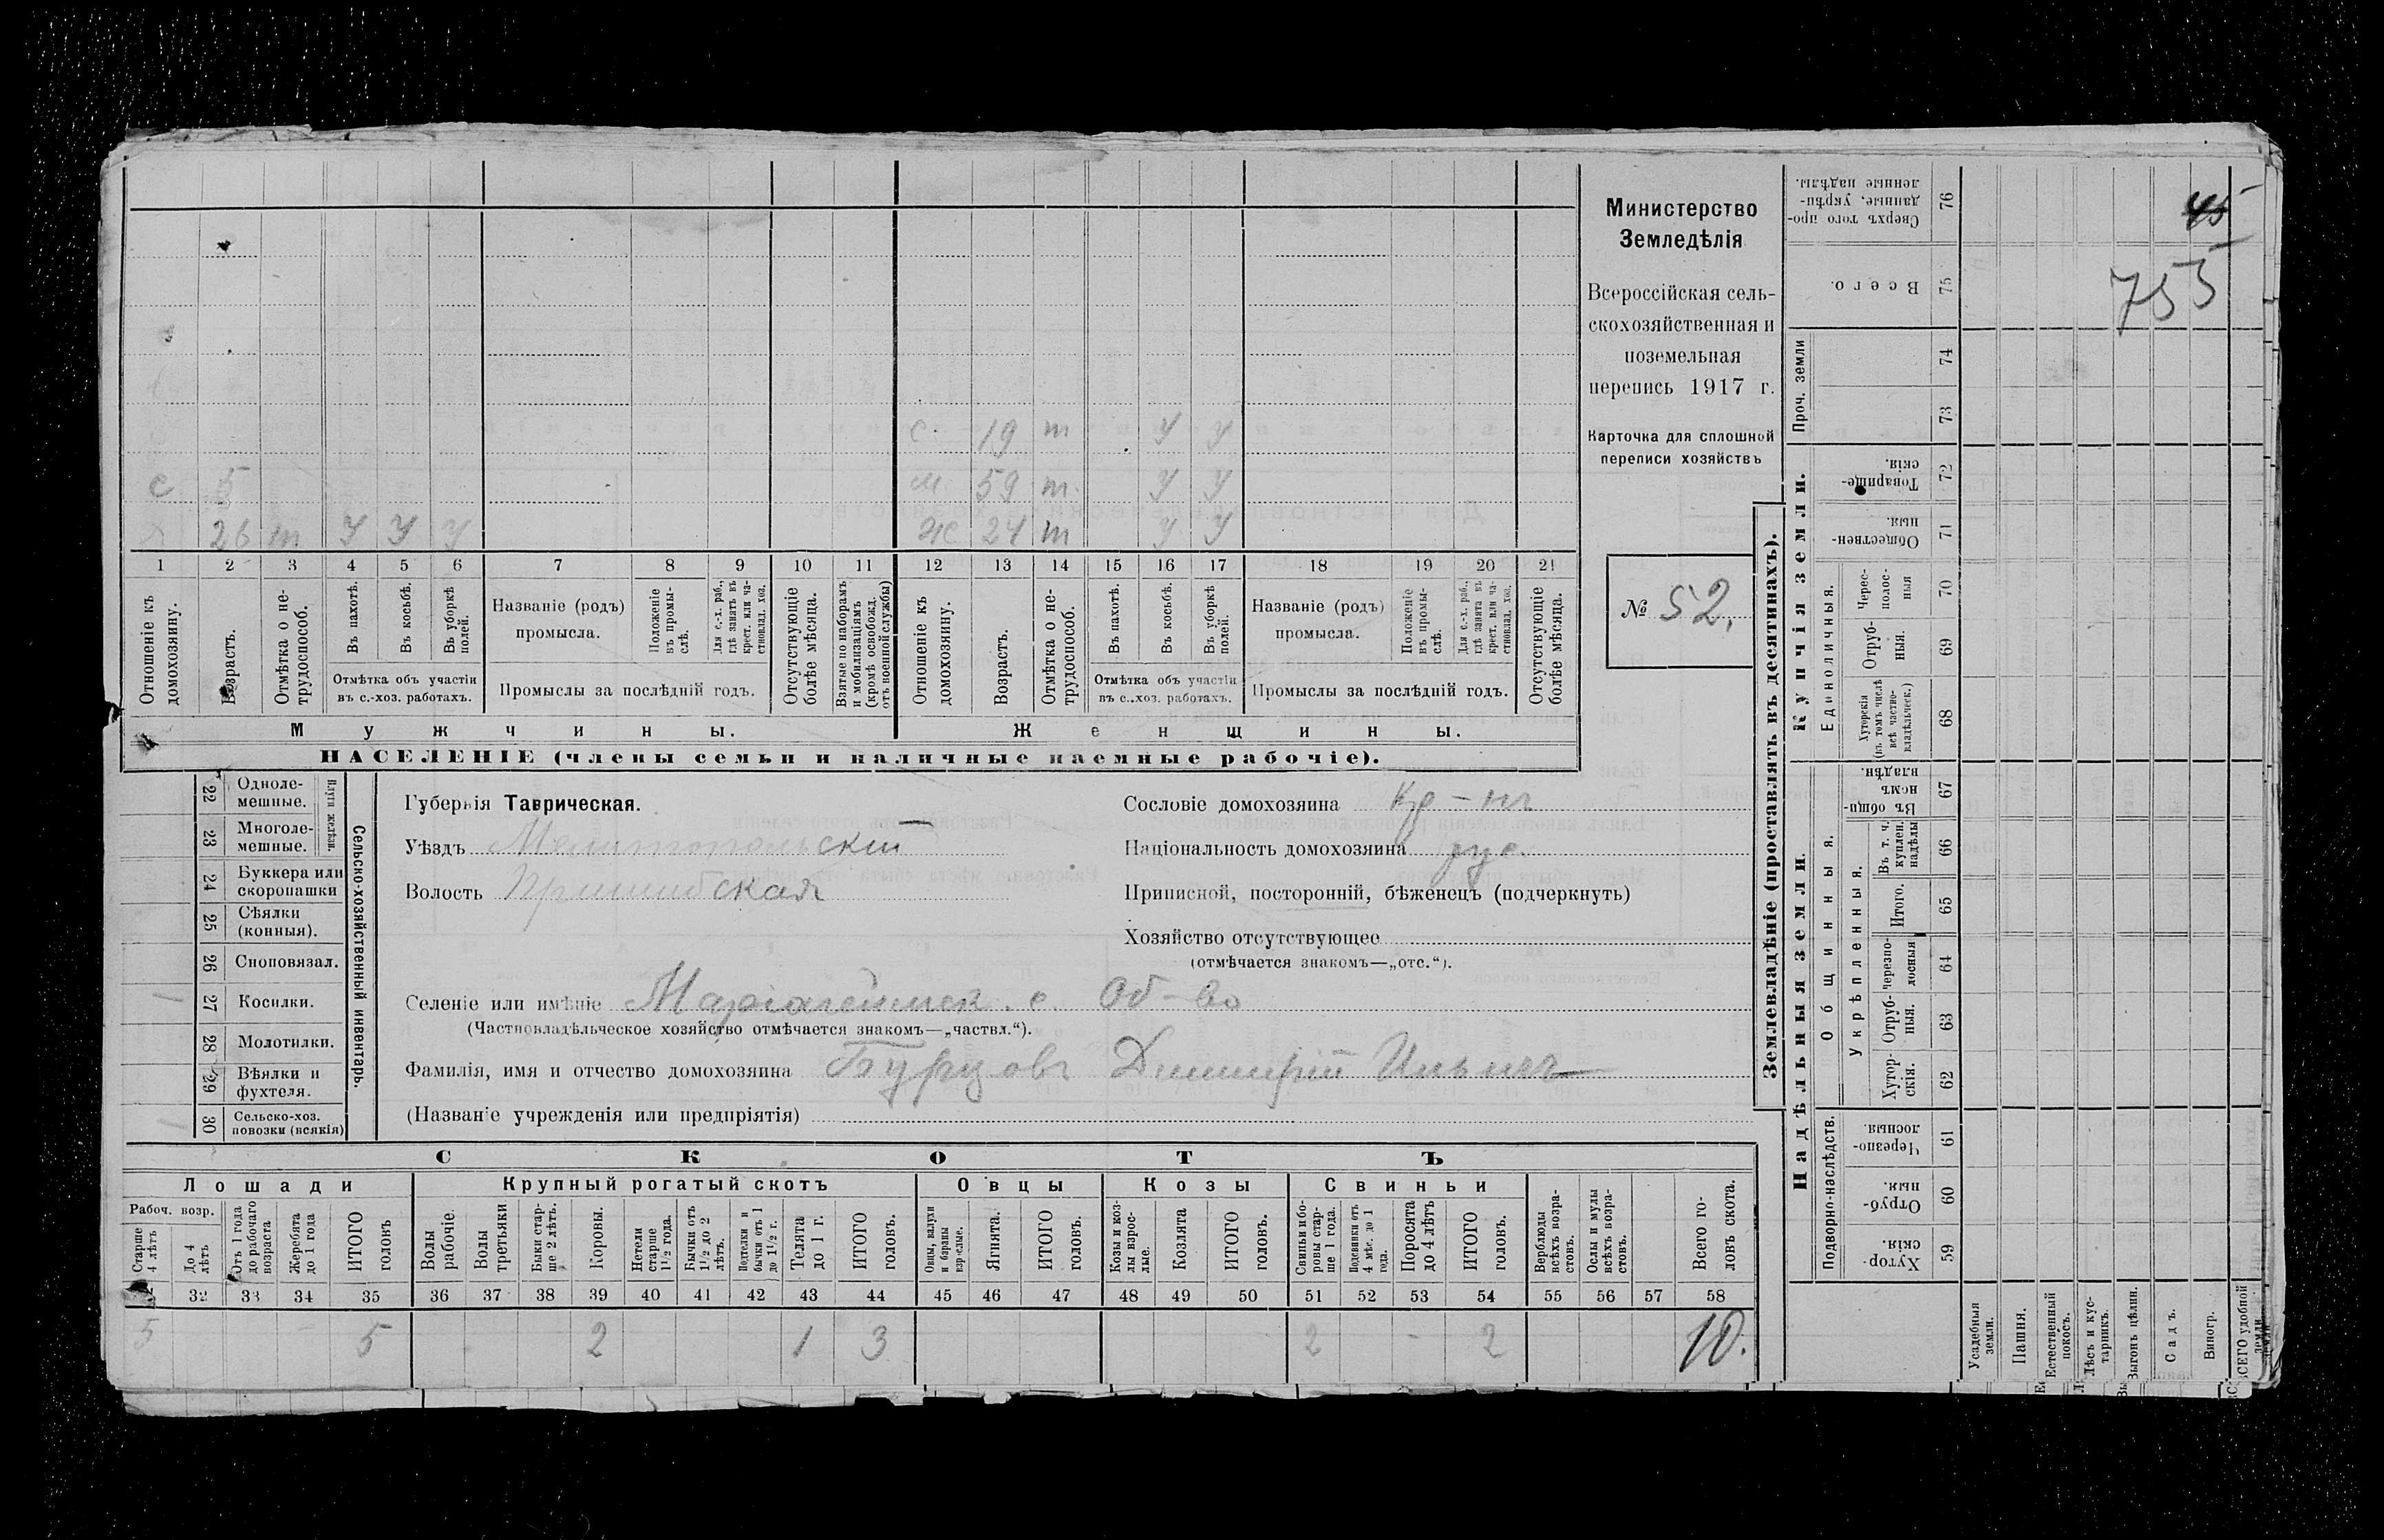 Министерство
Земледѣлія
Всероссійская сель-
скохозяйственная и
поземельная
перепись 1917 г.
Карточка для сплошной
переписи хозяйствъ
№ 52.
45
755
с. 19 т У У
с 5 м 59 т. У У
Х 26 т У У У ж 24 т У У
1 2 3 4 5 6 7 8 9 10 11 12 13 14 15 16 17 18 19 20 21
Отношеніе къ домохозяину.
Возрастъ.
Отмѣтка о не-трудоспособ.
Въ пахотѣ.
Въ косьбѣ.
Въ уборкѣ полей.
Отмѣтка объ участіи
въ с.-хоз. работахъ.
Названіе (родъ)
промысла.
Положеніе въ промы-слѣ.
Для с.-х. раб., гдѣ занятъ въ крест. или ча-стновлад. хоз.
Промыслы за послѣдній годъ.
Отсутствующіе болѣе мѣсяца.
Взятые по наборамъ и мобилизаціямъ (кромѣ освобожд. отъ военной службы)
Отношеніе къ домохозяину.
Возрастъ.
Отмѣтка о не-трудоспособ.
Въ пахотѣ.
Въ косьбѣ.
Въ уборкѣ полей.
Отмѣтка объ участіи
въ с.-хоз. работахъ.
Названіе (родъ)
промысла.
Положеніе въ промы-слѣ.
Для с.-х. раб., гдѣ занята въ крест. или ча-стновлад. хоз.
Промыслы за послѣдній годъ.
Отсутствующіе болѣе мѣсяца.
Мужчины. Женщины.
НАСЕЛЕНІЕ (члены семьи и наличные наемные рабочіе).
22 Одноле-мешные.
23 Многоле-мешные.
Плуги желѣзн.
24 Буккера или скоропашки
25 Сѣялки (конныя).
26 Сноповязал.
27 Косилки.
28 Молотилки.
29 Вѣялки и фухтеля.
30 Сельско-хоз. повозки (всякія)
Сельско-хозяйственный инвентарь.
Губернія Таврическая.
Уѣздъ Мелитопольскій
Волость Пришибская
Сословіе домохозяина Кр-нъ
Національность домохозяина рус.
Приписной, посторонній, бѣженецъ (подчеркнуть)
Хозяйство отсутствующее
(отмѣчается знакомъ—„отс.“).
Селеніе или имѣніе Маріагеймск. с. Об-во
(Частновладѣльческое хозяйство отмѣчается знакомъ—„частвл.“).
Фамилія, имя и отчество домохозяина Бурцовъ Димитрій Ильичъ
(Названіе учрежденія или предпріятія)
СКОТЪ
Лошади Крупный рогатый скотъ Овцы Козы Свиньи
Рабоч. возр.
Старше 4 лѣтъ
До 4 лѣтъ
Отъ 1 года до рабочаго возраста
Жеребята до 1 года
ИТОГО головъ
Волы рабочіе.
Волы третьяки
Быки стар-ше 2 лѣтъ.
Коровы.
Нетели старше 1½ года.
Бычки отъ 1½ до 2 лѣтъ.
Подтелки и бычки отъ 1 до 1½ г.
Телята до 1 г.
ИТОГО головъ.
Овцы, валухи и бараны взрослые.
Ягнята.
ИТОГО головъ.
Козы и коз-лы взрос-лые.
Козлята
ИТОГО головъ.
Свиньи и бо-ровы стар-ше 1 года.
Подсвинки отъ 4 мѣс. до 1 года.
Поросята до 4 лѣтъ
ИТОГО головъ.
Верблюды всѣхъ возра-стовъ.
Ослы и мулы всѣхъ возра-стовъ.
Всего го-ловъ скота.
32 33 34 35 36 37 38 39 40 41 42 43 44 45 46 47 48 49 50 51 52 53 54 55 56 57 58
5 5 2 1 3 2 - 2 10.
Землевладѣніе (проставлять въ десятинахъ).
Купчія земли.
Надѣльныя земли.
Сверхъ того про-данные, укрѣп-ленные надѣлы. 76
Всего. 75
Проч. земли 74
73
Товарище-скія. 72
Обществен-ныя. 71
Единоличныя.
Черес-полос-ныя 70
Отруб-ныя. 69
Хуторскія (въ томъ числѣ всѣ частно-владѣльческ.) 68
Общинныя.
Въ общи-нномъ владѣн. 67
Укрѣпленныя.
Въ т. ч. куплен. надѣлы 66
Итого. 65
Черезпо-лосныя 64
Отруб-ныя. 63
Хутор-скія. 62
Подворно-наслѣдств.
Черезпо-лосныя. 61
Отруб-ныя. 60
Хутор-скія. 59
Усадебныя земли.
Пашня.
Естественный покосъ.
Лѣсъ и кус-тарникъ.
Выгонъ цѣлин.
Садъ.
Виногр.
ВСЕГО удобной земли